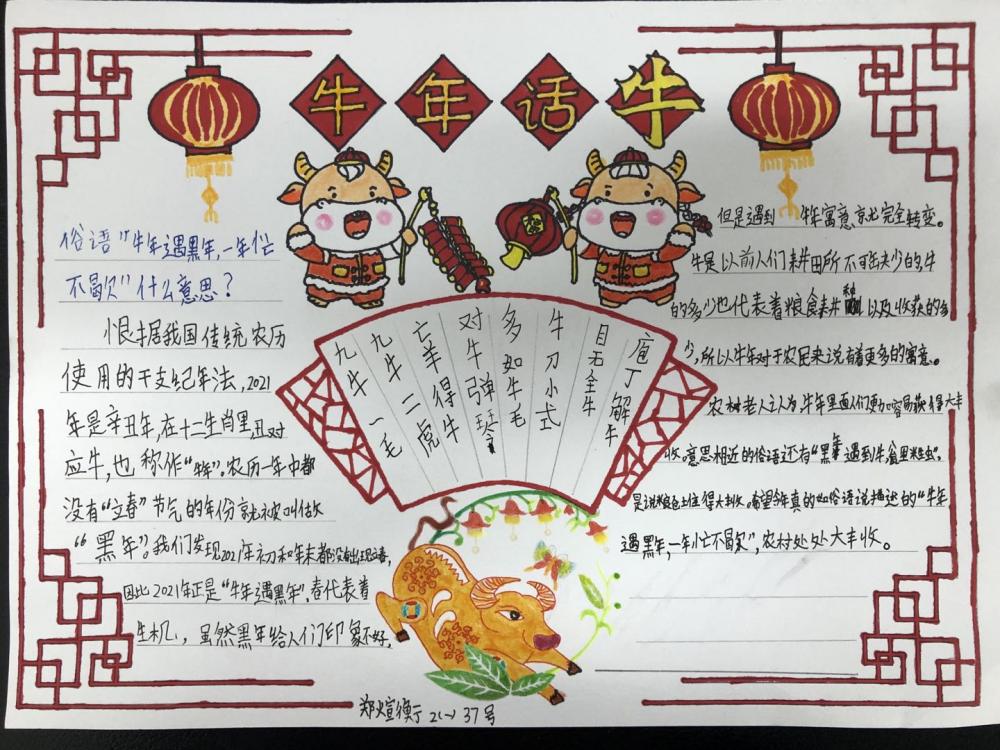 牛年话牛
俗语"牛年遇黑年,一年忙
不歇"什么意思?
根据我国传统农历
使用的干支纪年法,2021
年是辛丑年,在十二生肖里丑对
应牛,也称作"牛年".农历一年中都
没有"立春"节气的年份就被叫做
"黑年"。我们发现2021年初和年末都没有出现立春,
因此2021年正是"牛年遇黑年",春代表着
生机,虽然黑年给人们印象不好,
九牛一毛
九牛二虎
亡羊得牛
对牛弹琴
多如牛毛
牛刀小式
目无全牛
庖丁解牛
但是遇到牛年寓意就完全转变。
牛是以前人们耕田所不可缺少的,牛
的多少也代表着粮食耕种以及收获的多
少,所以牛年对于农民来说有着更多的寓意。
农村老人认为,牛年里面人们更加容易获得大丰
收。意思相近的俗语还有"黑年遇到牛,瓮里米生虫",
是说粮食往往得大丰收。希望今年真的如俗语说描述的"牛年
遇黑年,一年忙不歇",农村处处大丰收。
37号